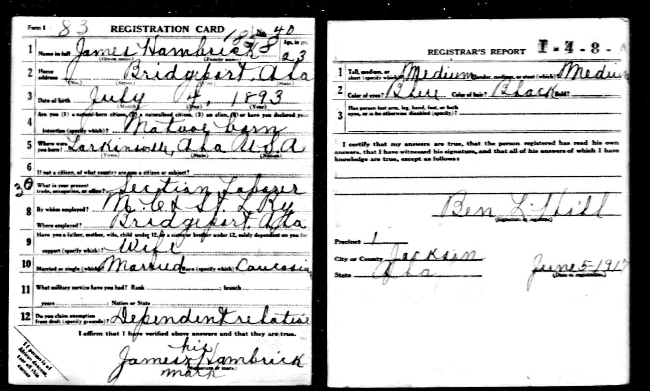 Form 1 83 REGISTRATION CARD No. 40
1 Name in full James Hambrick Age, in yrs. 23
(Given name) (Family name)
2 Home address Bridgeport, Ala
3 Date of birth July 4, 1893
(Month) (Day) (Year)
4 Are you (1) a natural-born citizen, (2) a naturalized citizen, (3) an alien, (4) or have you declared your
intention (specify which)? Native born
5 Where were you born? Larkinsville, Ala U.S.A
(Town) (State) (Nation)
6 If not a citizen, of what country are you a citizen or subject?
7 What is your present trade, occupation, or office? Section Laborer
8 By whom employed? N. C. & St. L. Ry
Where employed? Bridgeport, Ala
9 Have you a father, mother, wife, child under 12, or a sister or brother under 12, solely dependent on you for
support (specify which)? Wife
10 Married or single (which)? Married Race (specify which)? Caucasian
11 What military service have you had? Rank ; branch
years ; Nation or State
12 Do you claim exemption from draft (specify grounds)? Dependent relative
I affirm that I have verified above answers and that they are true.
his
James x Hambrick
mark
(Signature or mark)
REGISTRAR'S REPORT 1-4-8-A
1 Tall, medium, or short (specify which)? Medium Slender, medium, or stout (which)? Medium
2 Color of eyes? Blue Color of hair? Black Bald?
3 Has person lost arm, leg, hand, foot, or both
eyes, or is he otherwise disabled (specify)?
I certify that my answers are true, that the person registered has read his own
answers, that I have witnessed his signature, and that all of his answers of which I have
knowledge are true, except as follows:
Ben L
(Signature of registrar)
Precinct 1
City or County Jackson
State Ala June 5-1917
(Date of registration)